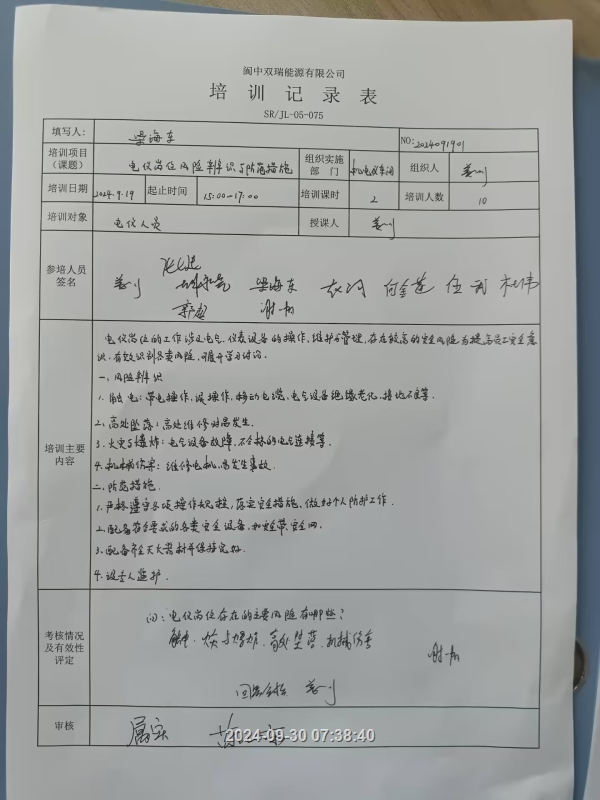 阆中双瑞能源有限公司
培训记录表
SR/JL-05-075
填写人: 梁海东 NO:2024091901
培训项目（课题） 电仪岗位风险辨识与防范措施 组织实施部门 机电仪车间 组织人 姜川
培训日期 2024.9.19 起止时间 15:00-17:00 培训课时 2 培训人数 10
培训对象 电仪人员 授课人 姜川
参培人员签名
姜川 梁海东 伍 杜伟
谢
培训主要内容
电仪岗位的工作涉及电气、仪表设备的操作、维护与管理,存在较高的安全风险,为提高员工安全意
识,有效识别各类风险,可展开学习讨论.
一、风险辨识
1.触电:带电操作,误操作,移动电缆,电气设备绝缘老化,接地不良等.
2.高处坠落:高处维修时易发生.
3.火灾与爆炸:电气设备故障,不合格的电气连接等.
4.机械伤害:维修电机,易发生事故.
二、防范措施.
1.严格遵守各项操作规程,落实安全措施,做好个人防护工作.
2.配备符合要求的各类安全设备,如安全带安全网.
3.配备齐全灭火器材并保持完好.
4.设专人监护.
考核情况及有效性评定
问:电仪岗位存在的主要风险有哪些?
触电、火灾与爆炸、高处坠落、机械伤害
谢
回答合格 姜川
审核 属实
2024-09-30 07:38:40